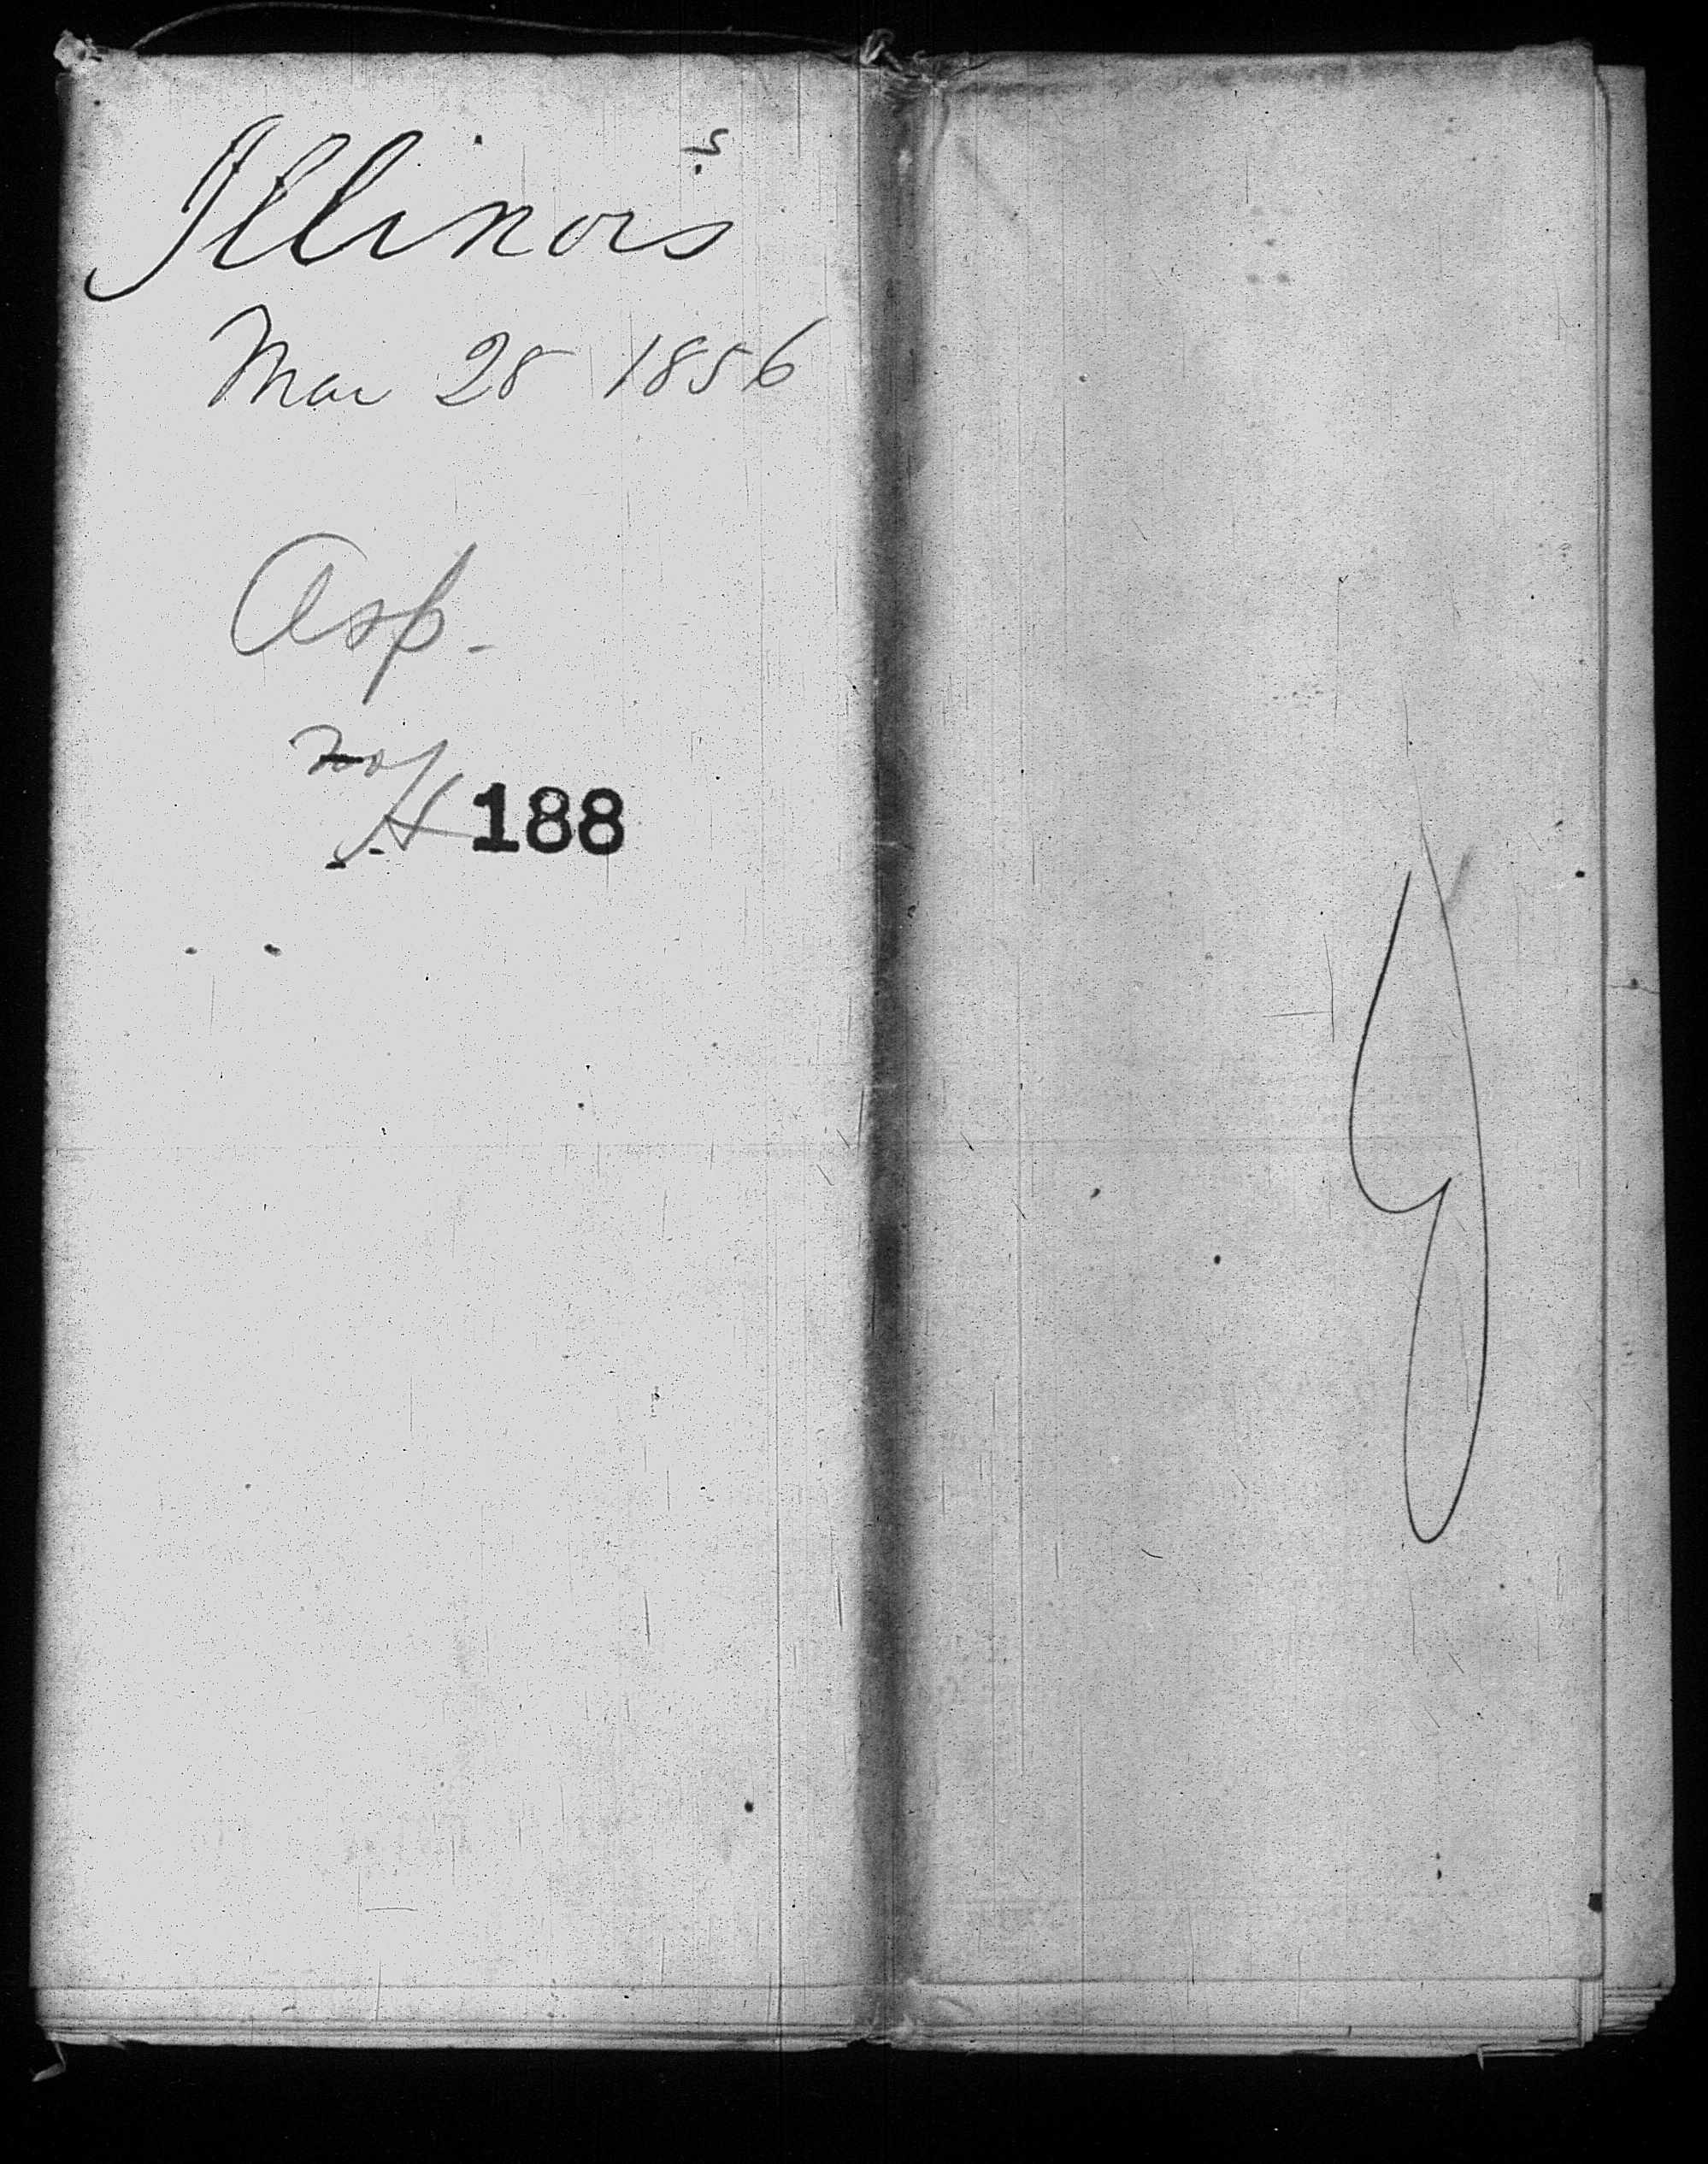 Illinois
Mar 28 1856
Asp.
188